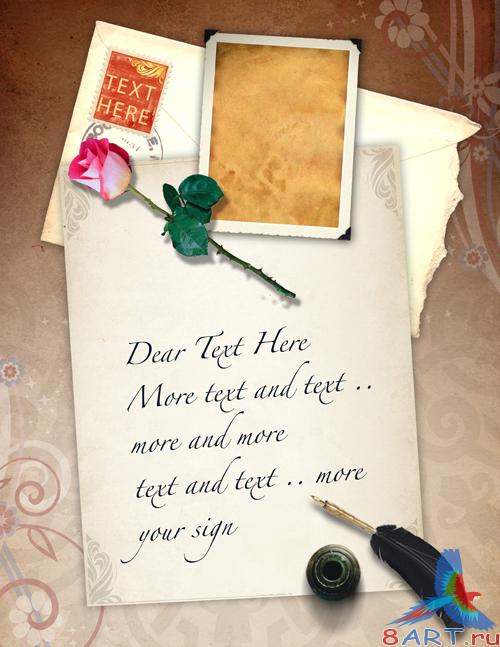 TEXT
HERE
Dear Text Here
More text and text ..
more and more
text and text .. more
your sign
8ART.ru